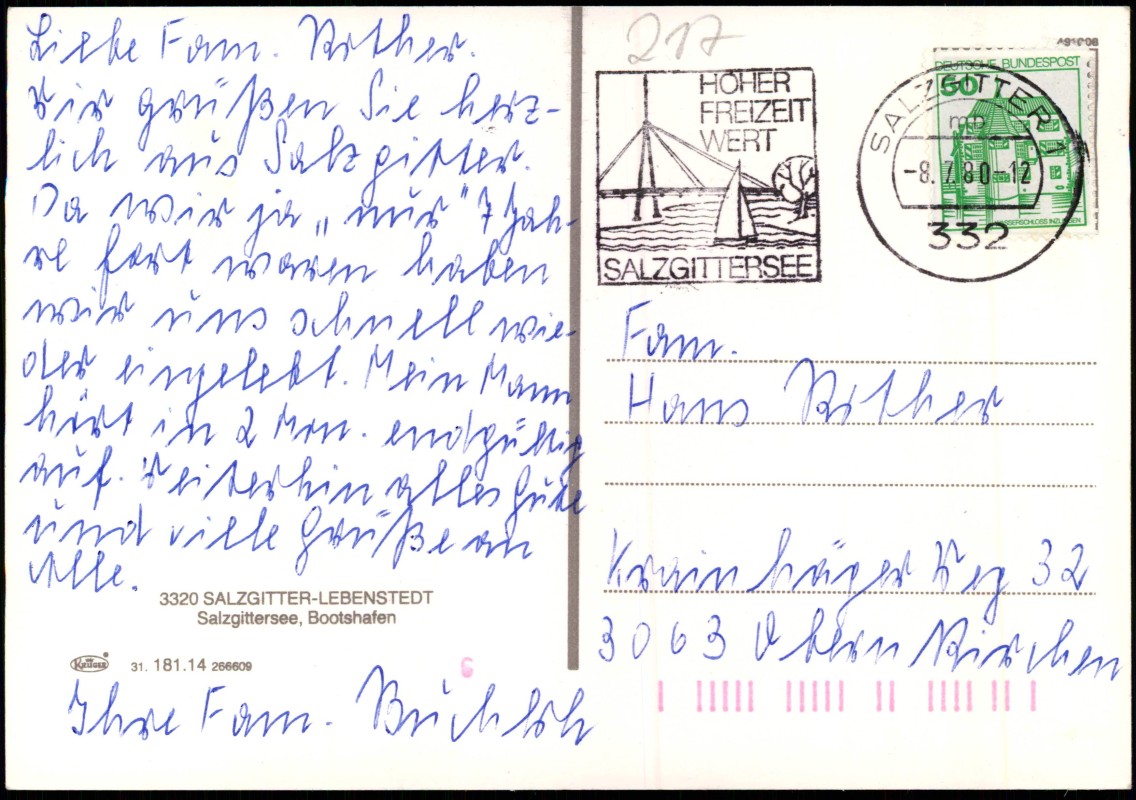 Liebe Fam. Rother.
Wir grüßen Sie herz-
lich aus Salzgitter.
Da wir ja „nur“ 7 Jah-
re fort waren haben
wir uns schnell wie-
der eingelebt. Mein Mann
hört in 2 Mon. endgültig
auf. Weiterhin alles Gute
und viele Grüße an
Alle.
3320 SALZGITTER-LEBENSTEDT
Salzgittersee, Bootshafen
KRÜGER
31. 181.14 266609
Ihre Fam.
217
HOHER
FREIZEIT
WERT
SALZGITTERSEE
SALZGITTER 1
-8.7.80-12
mb
332
DEUTSCHE BUNDESPOST
50
WASSERSCHLOSS INZLINGEN
Fam.
Hans Rother
Krainhäger Weg 32
3063 Obernkirchen